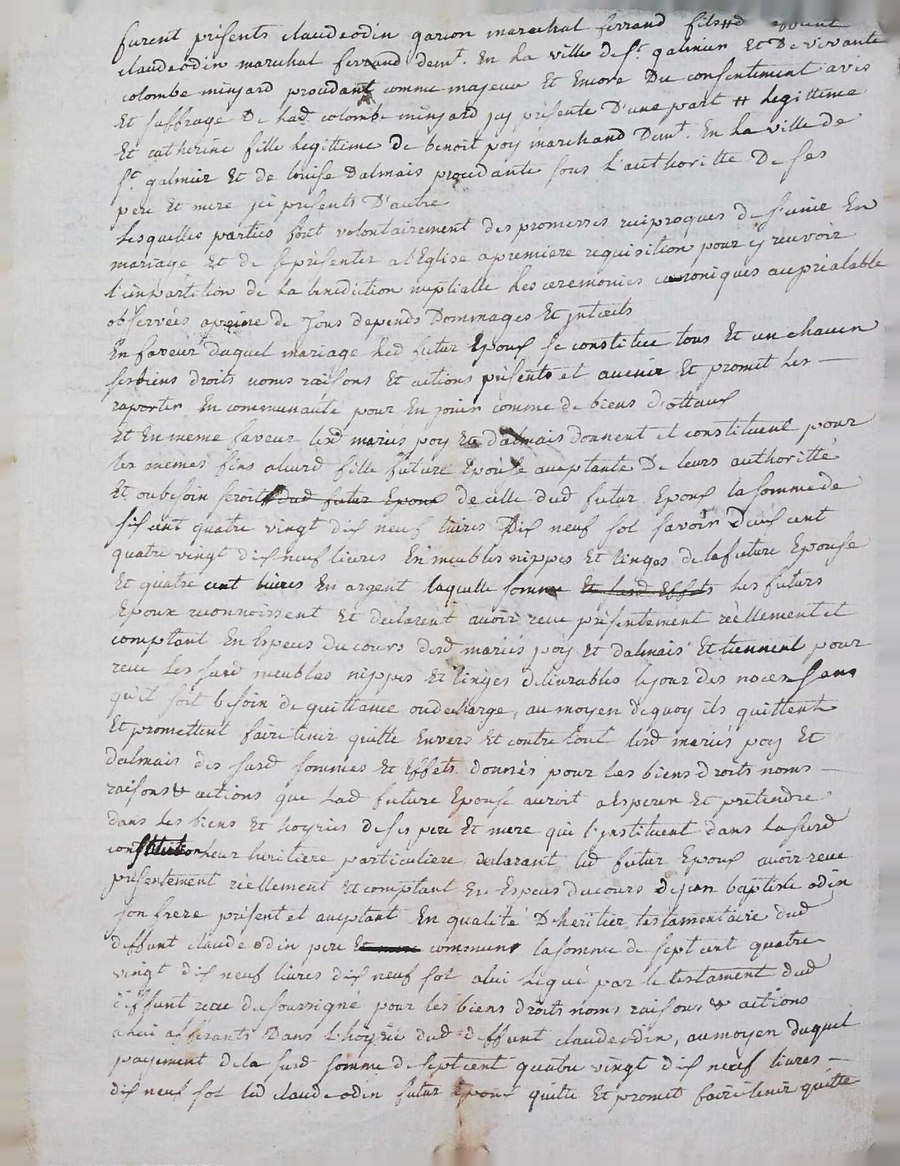 furent présents claude odin garson marechal ferrand fils # de
claude odin marechal ferrand demt. En La ville de St. galmier Et De vivante
colombe minjard procedant comme majeur Et Encore Du consentement avis
Et suffrage De Lad. colombe minjard icy présente D'une part # Legittime
Et catherine fille Legittime de benoit poy marchand Demt. En La ville de
St. galmier Et de louise Dalmais procedante sous L'authoritté De ses
pere Et mere ici présents D'autre
Lesquelles parties font volontairement des promesses reciproques de s'unir En
mariage Et de se présenter a l'Eglise a premiere requisition pour y recevoir
l'impartition de La benediction nuptialle Les ceremonies canoniques au préalable
observées a peine de Tous depends Dommages Et jnterets
En faveur duquel mariage Led. futur Epoux se constitue tous Et un chacun
ses biens droits noms raisons Et actions présents et avenir Et promet Les
raporter En communauté pour En jouir comme de biens dottaux
Et En meme faveur lesd. mariés poy Et dalmais donnent et constituent pour
les memes fins a leurd. fille future Epouse acceptante De leurs authoritté
Et ou besoin seroit dud. futur Epoux de celle dud. futur Epoux la somme de
six cent quatre vingt dix neuf livres Dix neuf sol savoir Deux cent
quatre vingt dix neuf livres En meubles nippes Et linges de la future Epouse
Et quatre cent livres En argent laquelle somme Et susd. Effets Les futurs
Epoux reconnoissent Et declarent avoir recu présentement réellement et
comptant En Especes du cours desd. mariés poy Et dalmais Et tiennent pour
recu Les susd. meubles nippes Et linges delivrables le jour des noces sans
qu'il soit besoin de quittance ou decharge, au moyen de quoy ils quittent
Et promettent faire tenir quitte Envers Et contre tout lesd. mariés poy Et
dalmais des susd. sommes Et Effets donnés pour Les biens droits noms
raisons & actions que Lad. future Epouse auroit a Esperer Et prétendre
dans Les biens Et hoyries de ses pere Et mere qui l'instituent dans La susd.
constitution Leur heritiere particuliere declarant Led. futur Epoux avoir recu
présentement réellement Et comptant En Especes du cours de jean baptiste odin
son frere présent et acceptant En qualité D'heritier testamentaire dud.
deffunt claude odin pere Et mere commun la somme de sept cent quatre
vingt dix neuf livres dix neuf sol a lui Legué par le testament dud.
deffunt recu du soussigné pour les biens droits noms raisons & actions
a lui afferants Dans L'hoyrie dud. deffunt claude odin, au moyen duquel
payement de la susd. somme de sept cent quatre vingt dix neuf livres
dix neuf sol led. claude odin futur Epoux quitte Et promet faire tenir quitte